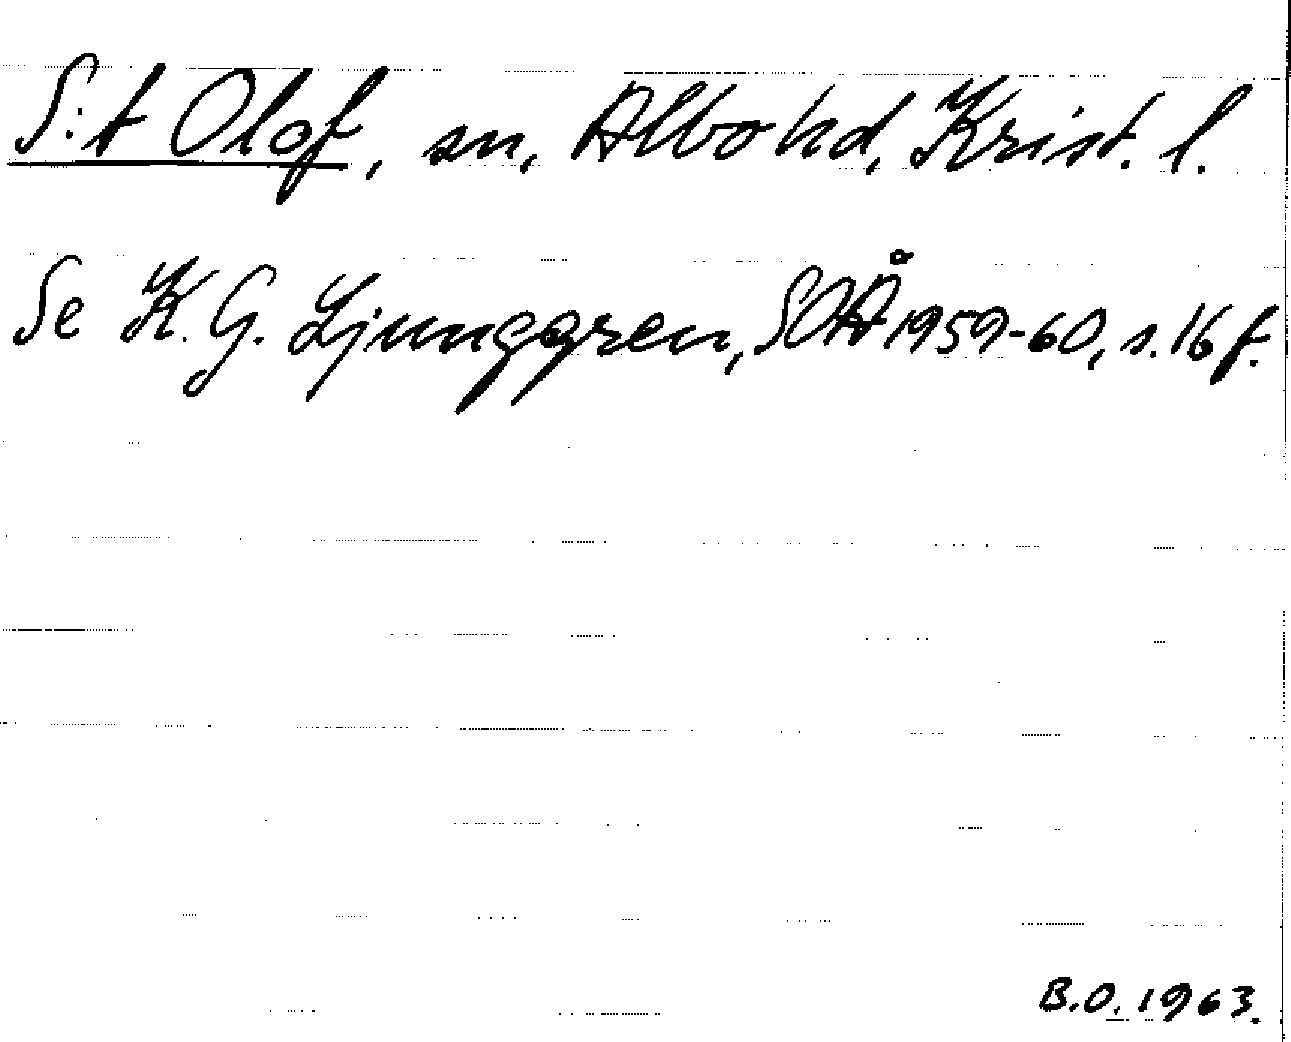 S:t Olof, sn, Albo hd, Krist. l.
Se K. G. Ljunggren, SOÅ 1959-60, s. 16 f.
B.O. 1963.